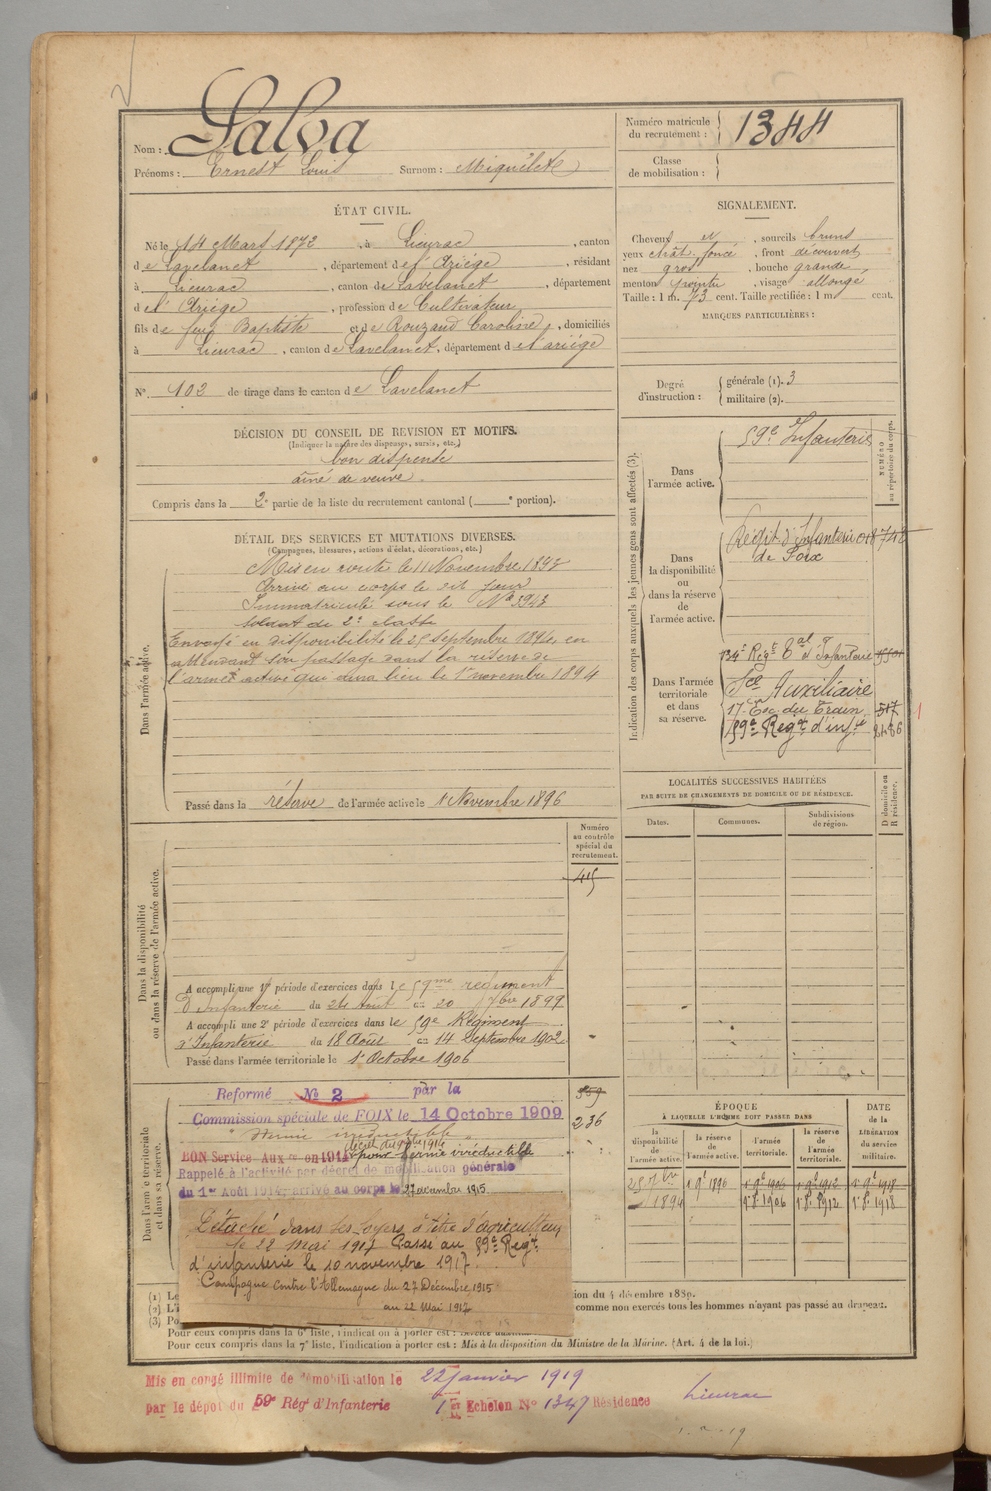 Nom : Salva
Prénoms : Ernest Louis Surnom : Miquelet
Numéro matricule du recrutement : 1344
Classe de mobilisation :
ÉTAT CIVIL.
Né le 14 Mars 1872, à Lieurac, canton
de Lavelanet, département de l'Ariège, résidant
à Lieurac, canton de Lavelanet, département
de l'Ariège, profession de Cultivateur
fils de feu Baptiste et de Rouzaud Caroline, domiciliés
à Lieurac, canton de Lavelanet, département de l'ariège
N° 102 de tirage dans le canton de Lavelanet
SIGNALEMENT.
Cheveux et, sourcils bruns
yeux chât. foncé, front découvert
nez gros, bouche grande
menton pointu, visage allongé
Taille : 1 m. 73 cent. Taille rectifiée : 1 m cent.
MARQUES PARTICULIÈRES :
Degré d'instruction : générale (1). 3
militaire (2).
DÉCISION DU CONSEIL DE REVISION ET MOTIFS.
(Indiquer la nature des dispenses, sursis, etc.)
bon dispensé
aîné de veuve.
Compris dans la 2e partie de la liste du recrutement cantonal ( e portion).
DÉTAIL DES SERVICES ET MUTATIONS DIVERSES.
(Campagnes, blessures, actions d'éclat, décorations, etc.)
Dans l'armée active.
Mis en route le 11 Novembre 1893
Arrivé au corps le dit jour
Immatriculé sous le N° 3943
soldat de 2e classe
Envoyé en disponibilité le 25 septembre 1894 en
attendant son passage dans la réserve de
l'armée active qui aura lieu le 1er novembre 1894
Passé dans la réserve de l'armée active le 1 Novembre 1896
Indication des corps auxquels les jeunes gens sont affectés (3).
NUMÉRO au répertoire du corps.
Dans l'armée active.
59e Infanterie
Dans la disponibilité ou dans la réserve de l'armée active.
Régit d'Infanterie
de Foix
Dans l'armée territoriale et dans sa réserve.
134e Régt tal d'Infanterie
Sce Auxiliaire
17e Esc. du Train 517
59e Regt d'infie 2486
LOCALITÉS SUCCESSIVES HABITÉES
PAR SUITE DE CHANGEMENTS DE DOMICILE OU DE RÉSIDENCE.
Dates. Communes. Subdivisions de région. D domicile ou R résidence.
Numéro au contrôle spécial du recrutement.
415
Dans la disponibilité ou dans la réserve de l'armée active.
A accompli une 1re période d'exercices dans le 59me régiment
d'Infanterie du 24 Août au 20 7bre 1899
A accompli une 2e période d'exercices dans le 59e Régiment
d'Infanterie du 18 Août au 14 Septembre 1902
Passé dans l'armée territoriale le 1er Octobre 1906
Dans l'armée territoriale et dans sa réserve.
Reformé No 2 par la
Commission spéciale de FOIX le 14 Octobre 1909
"Hernie irréductible"
236
BON Service Auxre en 1914 pour hernie irréductible
Rappelé à l'activité par décret de mobilisation générale
du 1er Août 1914, arrivé au corps le 27 décembre 1915.
Détaché dans ses foyers d'être d'agriculteur
le 22 mai 1917 Passé au 59e Regt
d'infanterie le 10 novembre 1917.
Campagne contre l'Allemagne du 27 Décembre 1915
au 22 Mai 1917
ÉPOQUE
À LAQUELLE L'HOMME DOIT PASSER DANS
la disponibilité de l'armée active. la réserve de l'armée active. l'armée territoriale. la réserve de l'armée territoriale.
DATE de la LIBÉRATION du service militaire.
25 7bre 1894 1 9e 1896 1 9e 1906 1 9e 1912 1 9e 1918
1er 8 1906 1er 8 1912 1er 8 1918
(1) Le
(2) L'i
(3) Po
ion du 4 décembre 1889.
comme non exercés tous les hommes n'ayant pas passé au drapeau.
Pour ceux compris dans la 6e liste, l'indication à porter est :
Pour ceux compris dans la 7e liste, l'indication à porter est : Mis à la disposition du Ministre de la Marine. (Art. 4 de la loi.)
Mis en congé illimité de démobilisation le 22 janvier 1919
par le dépôt du 59e Régt d'Infanterie 1er Echelon N° 1347 Résidence Lieurac